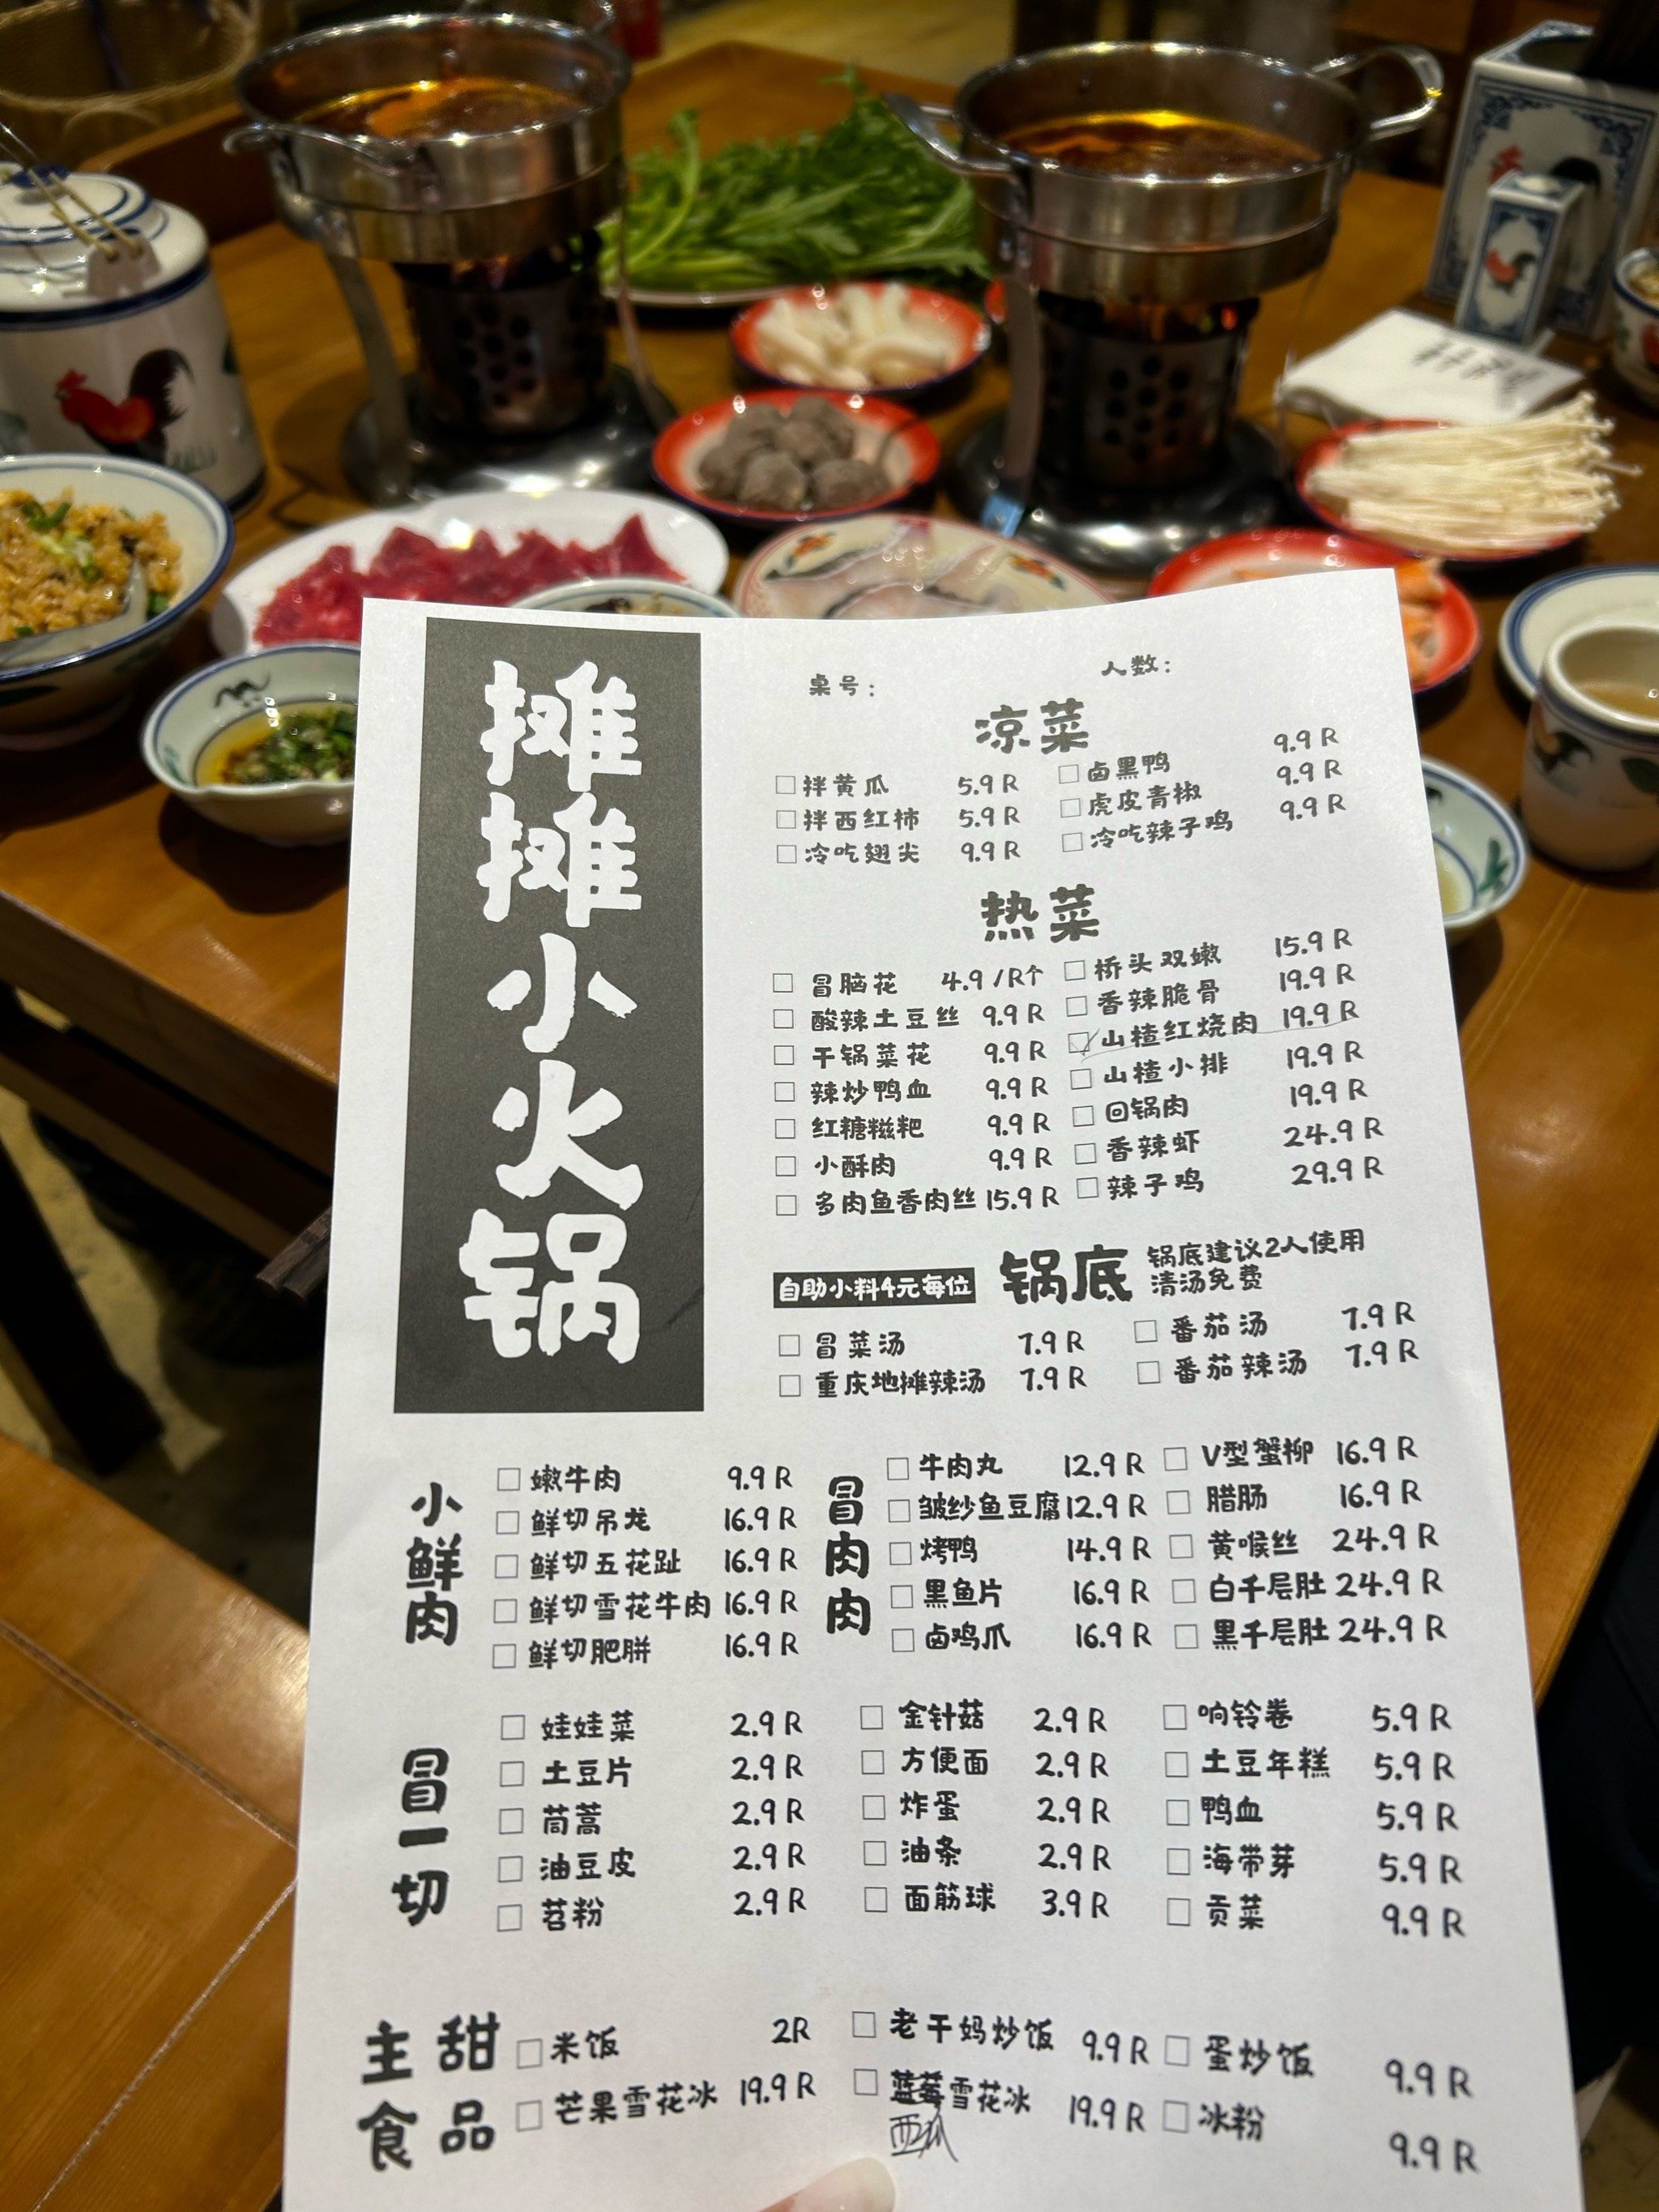 摊摊小火锅
桌号：
人数：
凉菜
□拌黄瓜 5.9 R
□拌西红柿 5.9 R
□冷吃翅尖 9.9 R
□卤黑鸭 9.9 R
□虎皮青椒 9.9 R
□冷吃辣子鸡 9.9 R
热菜
□冒脑花 4.9 /R个
□酸辣土豆丝 9.9 R
□干锅菜花 9.9 R
□辣炒鸭血 9.9 R
□红糖糍粑 9.9 R
□小酥肉 9.9 R
□多肉鱼香肉丝 15.9 R
□桥头双嫩 15.9 R
□香辣脆骨 19.9 R
☑山楂红烧肉 19.9 R
□山楂小排 19.9 R
□回锅肉 19.9 R
□香辣虾 24.9 R
□辣子鸡 29.9 R
自助小料4元每位
锅底
锅底建议2人使用
清汤免费
□冒菜汤 7.9 R
□重庆地摊辣汤 7.9 R
□番茄汤 7.9 R
□番茄辣汤 7.9 R
小鲜肉
□嫩牛肉 9.9 R
□鲜切吊龙 16.9 R
□鲜切五花趾 16.9 R
□鲜切雪花牛肉 16.9 R
□鲜切肥胼 16.9 R
冒肉肉
□牛肉丸 12.9 R
□皱纱鱼豆腐 12.9 R
□烤鸭 14.9 R
□黑鱼片 16.9 R
□卤鸡爪 16.9 R
□V型蟹柳 16.9 R
□腊肠 16.9 R
□黄喉丝 24.9 R
□白千层肚 24.9 R
□黑千层肚 24.9 R
冒一切
□娃娃菜 2.9 R
□土豆片 2.9 R
□茼蒿 2.9 R
□油豆皮 2.9 R
□苕粉 2.9 R
□金针菇 2.9 R
□方便面 2.9 R
□炸蛋 2.9 R
□油条 2.9 R
□面筋球 3.9 R
□响铃卷 5.9 R
□土豆年糕 5.9 R
□鸭血 5.9 R
□海带芽 5.9 R
□贡菜 9.9 R
主食
甜品
□米饭 2R
□芒果雪花冰 19.9 R
□老干妈炒饭 9.9 R
□蓝莓雪花冰 19.9 R
西瓜
□蛋炒饭 9.9 R
□冰粉 9.9 R